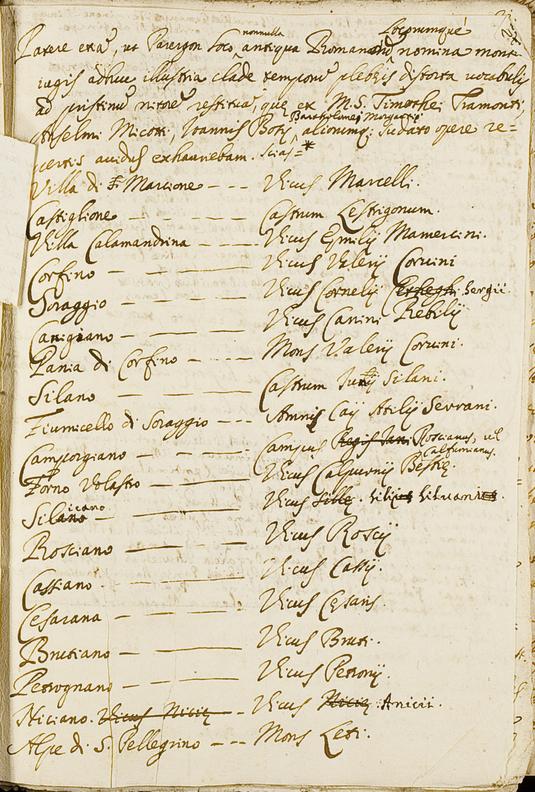 nonnulla Locorumque
Parere erat, ut Parergon loco antiqua Romanor nomina mont
iagis adhuc illustria clade temporu plebeis distorta vocabulis
ad pristinu nitore restitua, que ex M.S. Timothei Tramonti,
Bartholomei Morganti
Anselmi Micotti, Ioannis Boty, aliorumq: sudato opere re=
certis avidus exhauriebam. scias=*
Villa di Marcione --- Vicus Marcelli.
Castiglione --- Castrum Lestrigonum.
Villa Calamandrina --- Vicus Emilij Mamercini.
Corfino --- Vicus Valerij Corvini
Soraggio --- Vicus Cornelij Sergii.
Canigiano --- Vicus Canini Rebilij
Pania di Corfino --- Mons Valerij Corvini.
Silano --- Castrum Junij Silani.
Fiumicello di Soraggio --- Amnis Caij Atilij Serrani.
Camporgiano --- Campus Roscianus, vel
Calfurnianus.
Forno Volastro --- Vicus Calpurnij Bestie.
Silicano --- Vicus Silvani
Rosciano --- Vicus Roscij
Cassiano --- Vicus Cassij.
Cesarana --- Vicus Cesaris.
Brutiano --- Vicus Bruti.
Petrognano --- Vicus Petronij.
Niciano. Vicus Nicie --- Vicus Nicie Anicii.
Alpe di S. Pellegrino --- Mons Leti.